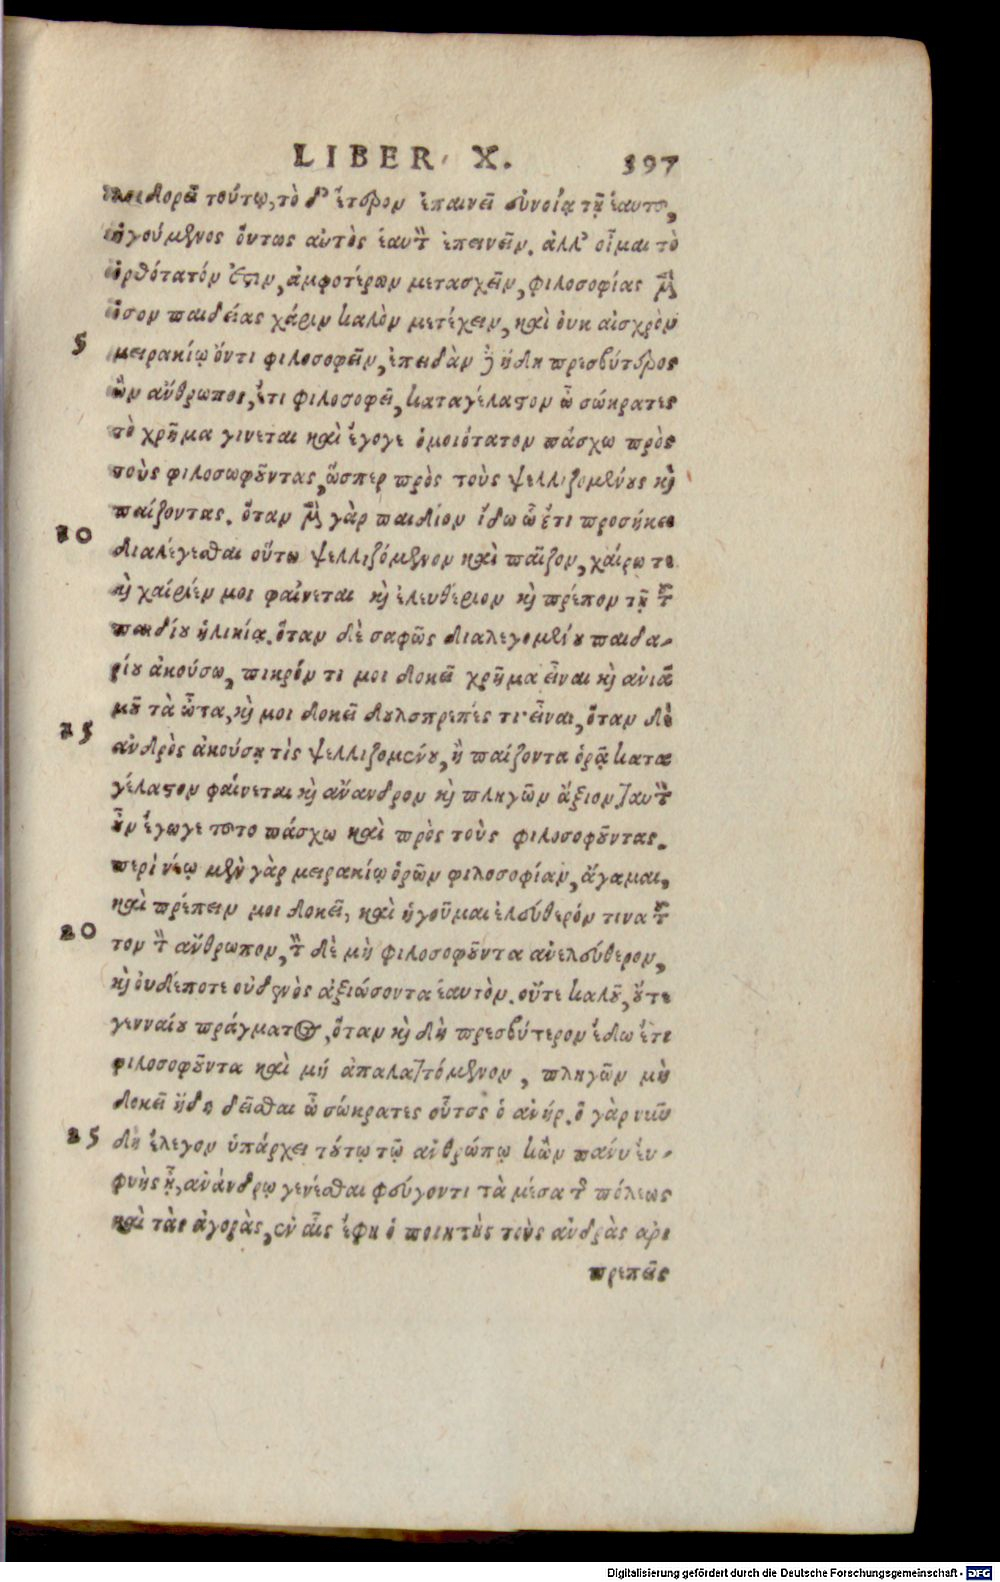 LIBER X. 397
λοιδορεῖ τούτῳ, τὸ δ' ἕτερον ἐπαινεῖ εὐνοίᾳ τῇ ἑαυτοῦ,
ἡγούμενος ὅντως αὐτὸς ἑαυτὸν ἐπαινεῖν. ἀλλ' οἶμαι τὸ
ὀρθότατόν ἐστιν, ἀμφοτέρων μετασχεῖν, φιλοσοφίας μὲν
ὅσον παιδείας χάριν καλὸν μετέχειν, καὶ οὐκ αἰσχρὸν
5 μειρακίῳ ὄντι φιλοσοφεῖν, ἐπειδὰν δὲ ἤδη πρεσβύτερος
ὢν ἄνθρωπος, ἔτι φιλοσοφεῖ, καταγέλαστον ὦ σώκρατες
τὸ χρῆμα γίνεται καὶ ἔγογε ὁμοιότατον πάσχω πρὸς
τοὺς φιλοσωφοῦντας, ὥσπερ πρὸς τοὺς ψελλιζομένους καὶ
παίζοντας. ὅταν μὲν γὰρ παιδίον ἴδω ὧ ἔτι προσήκει
10 διαλέγεσθαι οὕτω ψελλιζόμενον καὶ παῖζον, χαίρω τε
καὶ χαίριέν μοι φαίνεται καὶ ἐλευθέριον καὶ πρέπον τῇ τοῦ
παιδίου ἡλικίᾳ. ὅταν δὲ σαφῶς διαλεγομένου παιδα-
ρίου ἀκούσω, πικρόν τι μοι δοκεῖ χρῆμα εἶναι καὶ ἀνιᾶ
μοῦ τὰ ὦτα, καὶ μοι δοκεῖ δουλοπρεπές τι εἶναι, ὅταν δὲ
15 ἀνδρὸς ἀκούσῃ τὶς ψελλιζομένου, ἢ παίζοντα ὁρᾷ κατα
γέλαστον φαίνεται καὶ ἄνανδρον καὶ πληγῶν ἄξιον ταυτὸν
οὖν ἔγωγε τοῦτο πάσχω καὶ πρὸς τοὺς φιλοσοφοῦντας.
περὶ νέῳ μὲν γὰρ μειρακίῳ ὁρῶν φιλοσοφίαν, ἄγαμαι,
καὶ πρέπειν μοι δοκεῖ, καὶ ἡγοῦμαι ἐλεύθερόν τινα τοῦ
20 τον τὸν ἄνθρωπον, τὸν δὲ μὴ φιλοσοφοῦντα ἀνελεύθερον,
καὶ οὐδέποτε οὐδενὸς ἀξιώσοντα ἑαυτὸν. οὔτε καλοῦ, οὔτε
γενναίου πράγματος, ὅταν καὶ δὴ πρεσβύτερον ἔδω ἔτι
φιλοσοφοῦντα καὶ μή ἀπαλαττόμενον, πληγῶν μὴ
δοκεῖ ἤδη δεῖσθαι ὦ σώκρατες οὗτος ὁ ἀνήρ. ὃ γὰρ νυῦ
25 δὴ ἔλεγον ὑπάρχει τούτῳ τῷ ἀνθρώπῳ κἂν πάνυ εὐ-
φυὴς ᾖ, ἀνάνδρῳ γενέσθαι φεύγοντι τὰ μέσα τῆς πόλεως
καὶ τὰς ἀγορὰς, ἐν αἷς ἔφη ὁ ποιητὴς τοὺς ἀνδρὰς ἀρι
πρεπεῖς
Digitalisierung gefördert durch die Deutsche Forschungsgemeinschaft - DFG